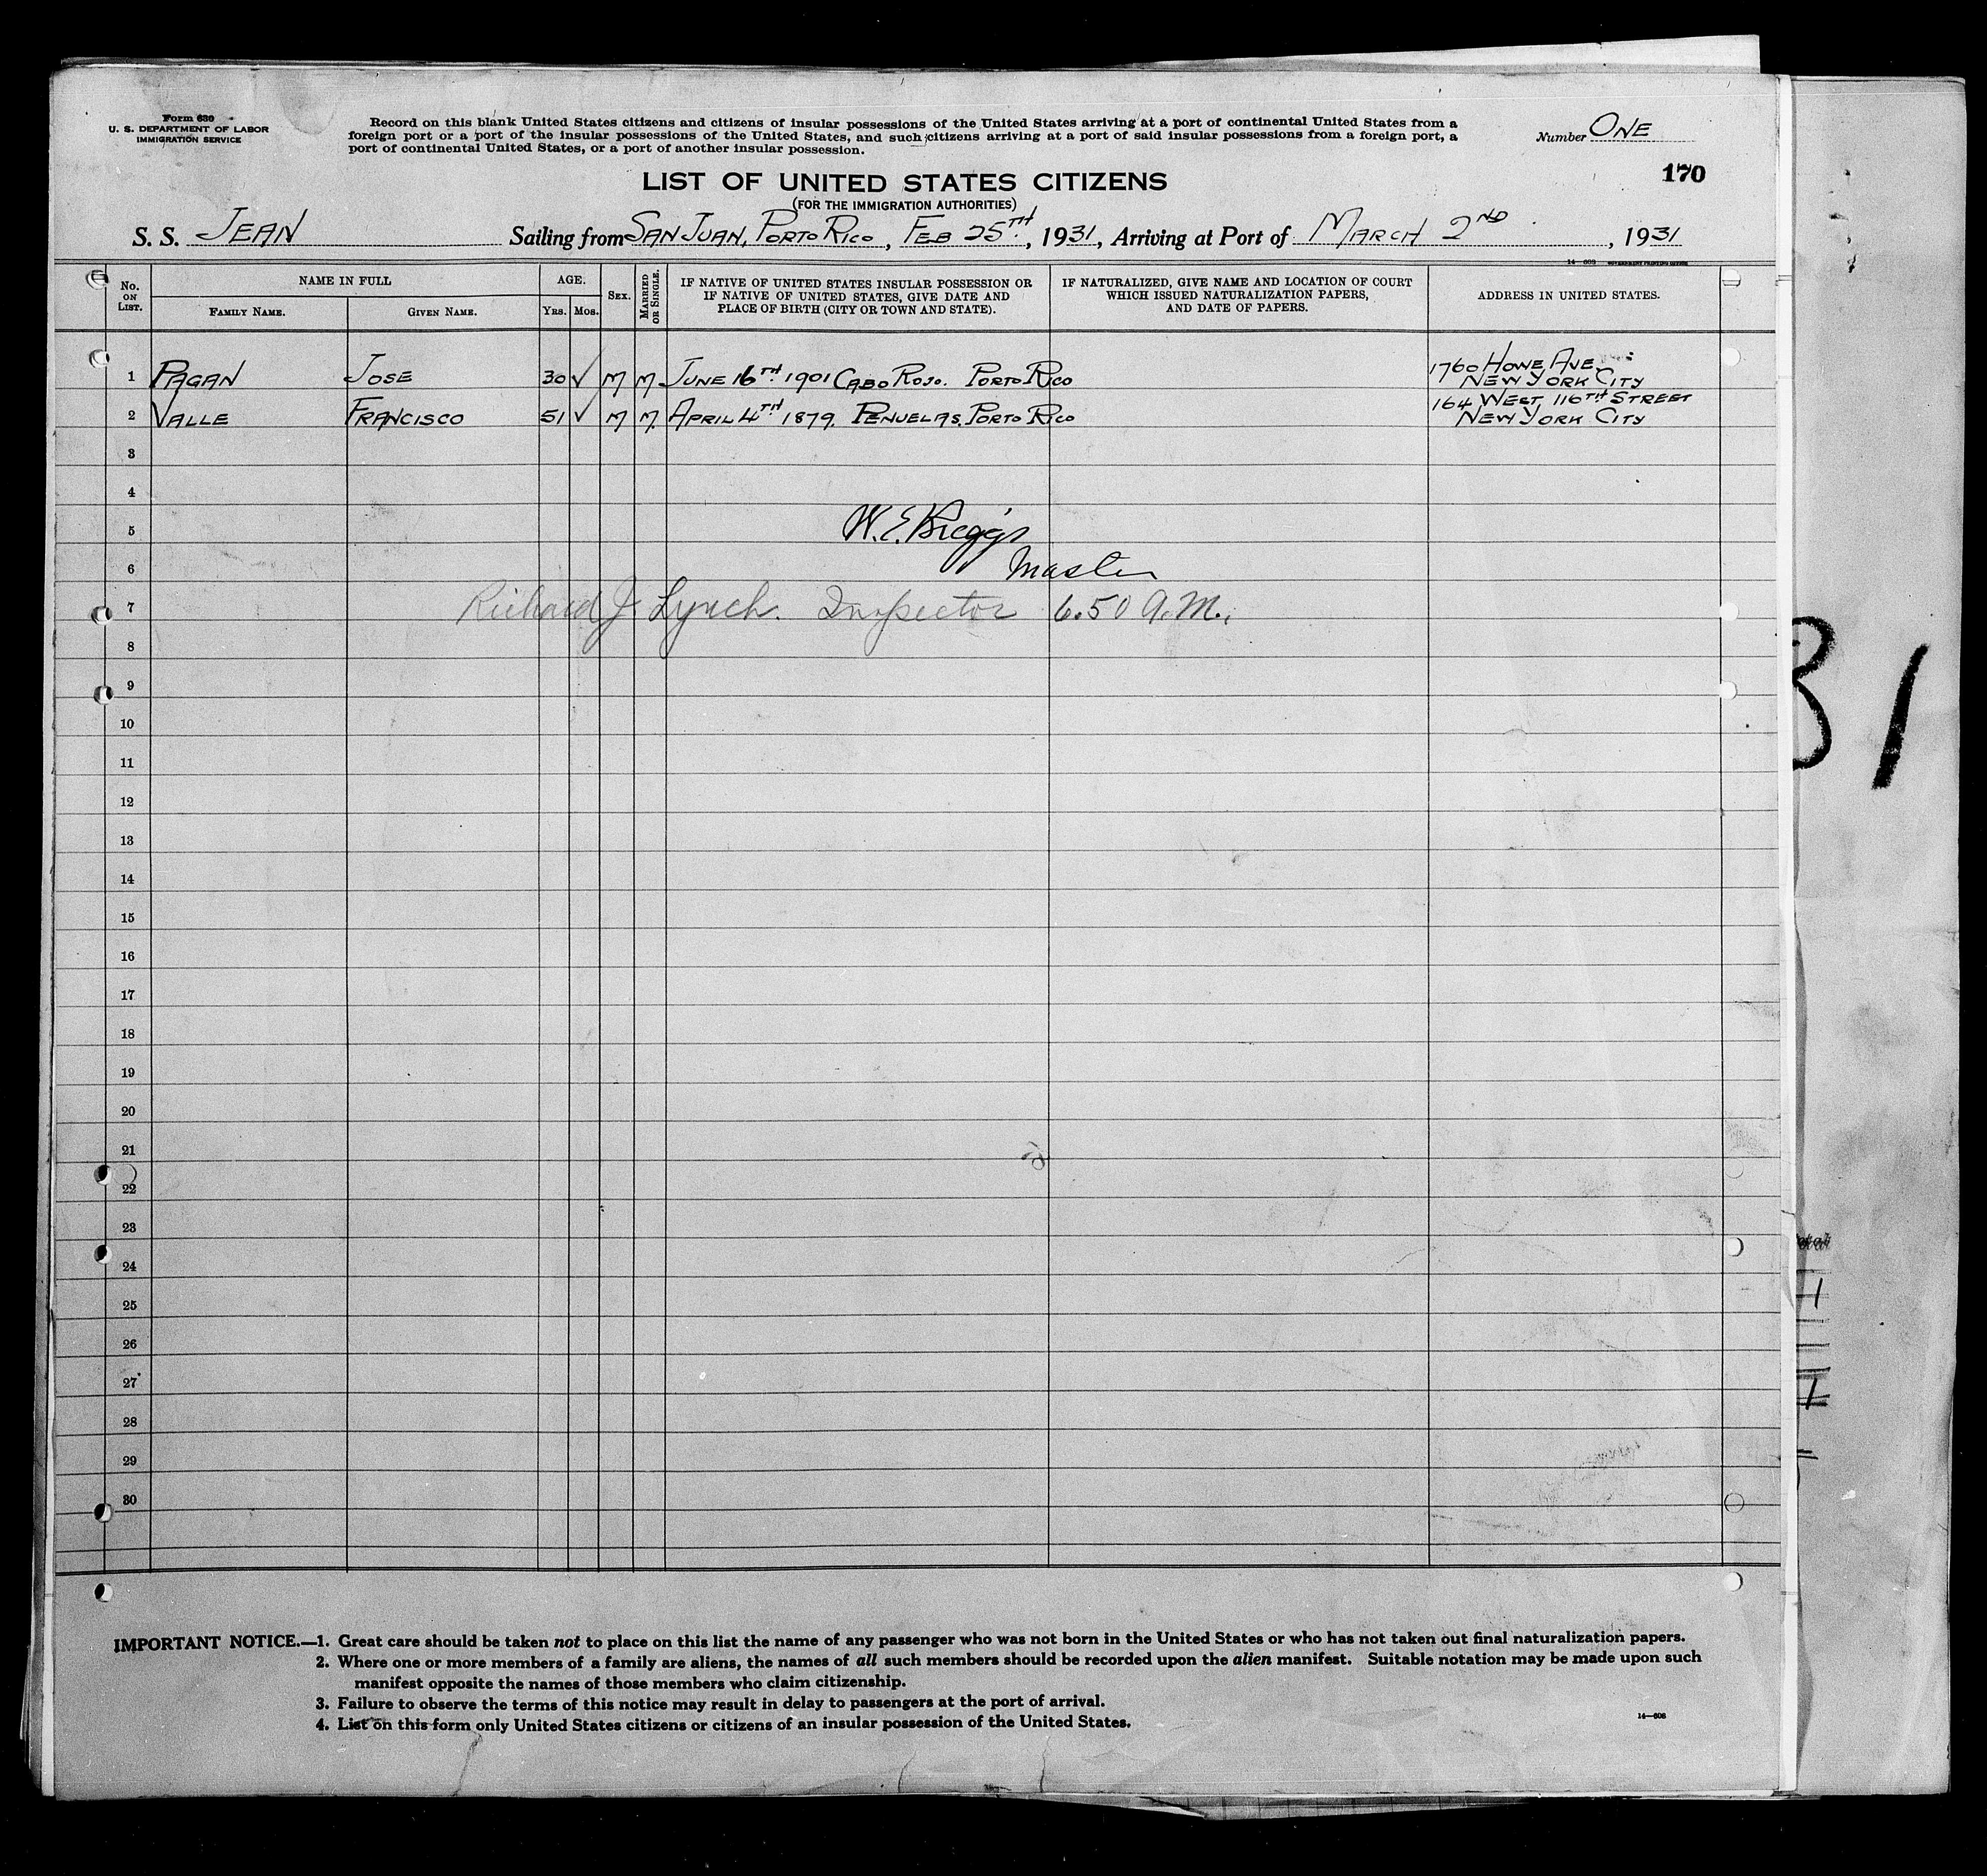 Form 630
U. S. DEPARTMENT OF LABOR
IMMIGRATION SERVICE
Record on this blank United States citizens and citizens of insular possessions of the United States arriving at a port of continental United States from a
foreign port or a port of the insular possessions of the United States, and such citizens arriving at a port of said insular possessions from a foreign port, a
port of continental United States, or a port of another insular possession.
Number ONE
170
LIST OF UNITED STATES CITIZENS
(FOR THE IMMIGRATION AUTHORITIES)
S. S. JEAN Sailing from SAN JUAN, PORTO RICO, FEB 25TH, 1931, Arriving at Port of MARCH 2ND, 1931
14—608 GOVERNMENT PRINTING OFFICE
No. ON LIST.
NAME IN FULL
FAMILY NAME.
GIVEN NAME.
AGE.
YRS. MOS.
SEX.
MARRIED OR SINGLE.
IF NATIVE OF UNITED STATES INSULAR POSSESSION OR
IF NATIVE OF UNITED STATES, GIVE DATE AND
PLACE OF BIRTH (CITY OR TOWN AND STATE).
IF NATURALIZED, GIVE NAME AND LOCATION OF COURT
WHICH ISSUED NATURALIZATION PAPERS,
AND DATE OF PAPERS.
ADDRESS IN UNITED STATES.
1 PAGAN JOSE 30 ✓ M M JUNE 16TH 1901 CABO ROJO. PORTO RICO 1760 HOWE AVE.
NEW YORK CITY
2 VALLE FRANCISCO 51 ✓ M M. APRIL 4TH 1879. PENUELAS, PORTO RICO 164 WEST 116TH STREET
NEW YORK CITY
3
4
5 W. E. Briggs
6 Master
7 Richard J. Lynch. Inspector 6.50 A.M.
8
9
10
11
12
13
14
15
16
17
18
19
20
21
22
23
24
25
26
27
28
29
30
31
IMPORTANT NOTICE.—1. Great care should be taken not to place on this list the name of any passenger who was not born in the United States or who has not taken out final naturalization papers.
2. Where one or more members of a family are aliens, the names of all such members should be recorded upon the alien manifest. Suitable notation may be made upon such
manifest opposite the names of those members who claim citizenship.
3. Failure to observe the terms of this notice may result in delay to passengers at the port of arrival.
4. List on this form only United States citizens or citizens of an insular possession of the United States.
14—608